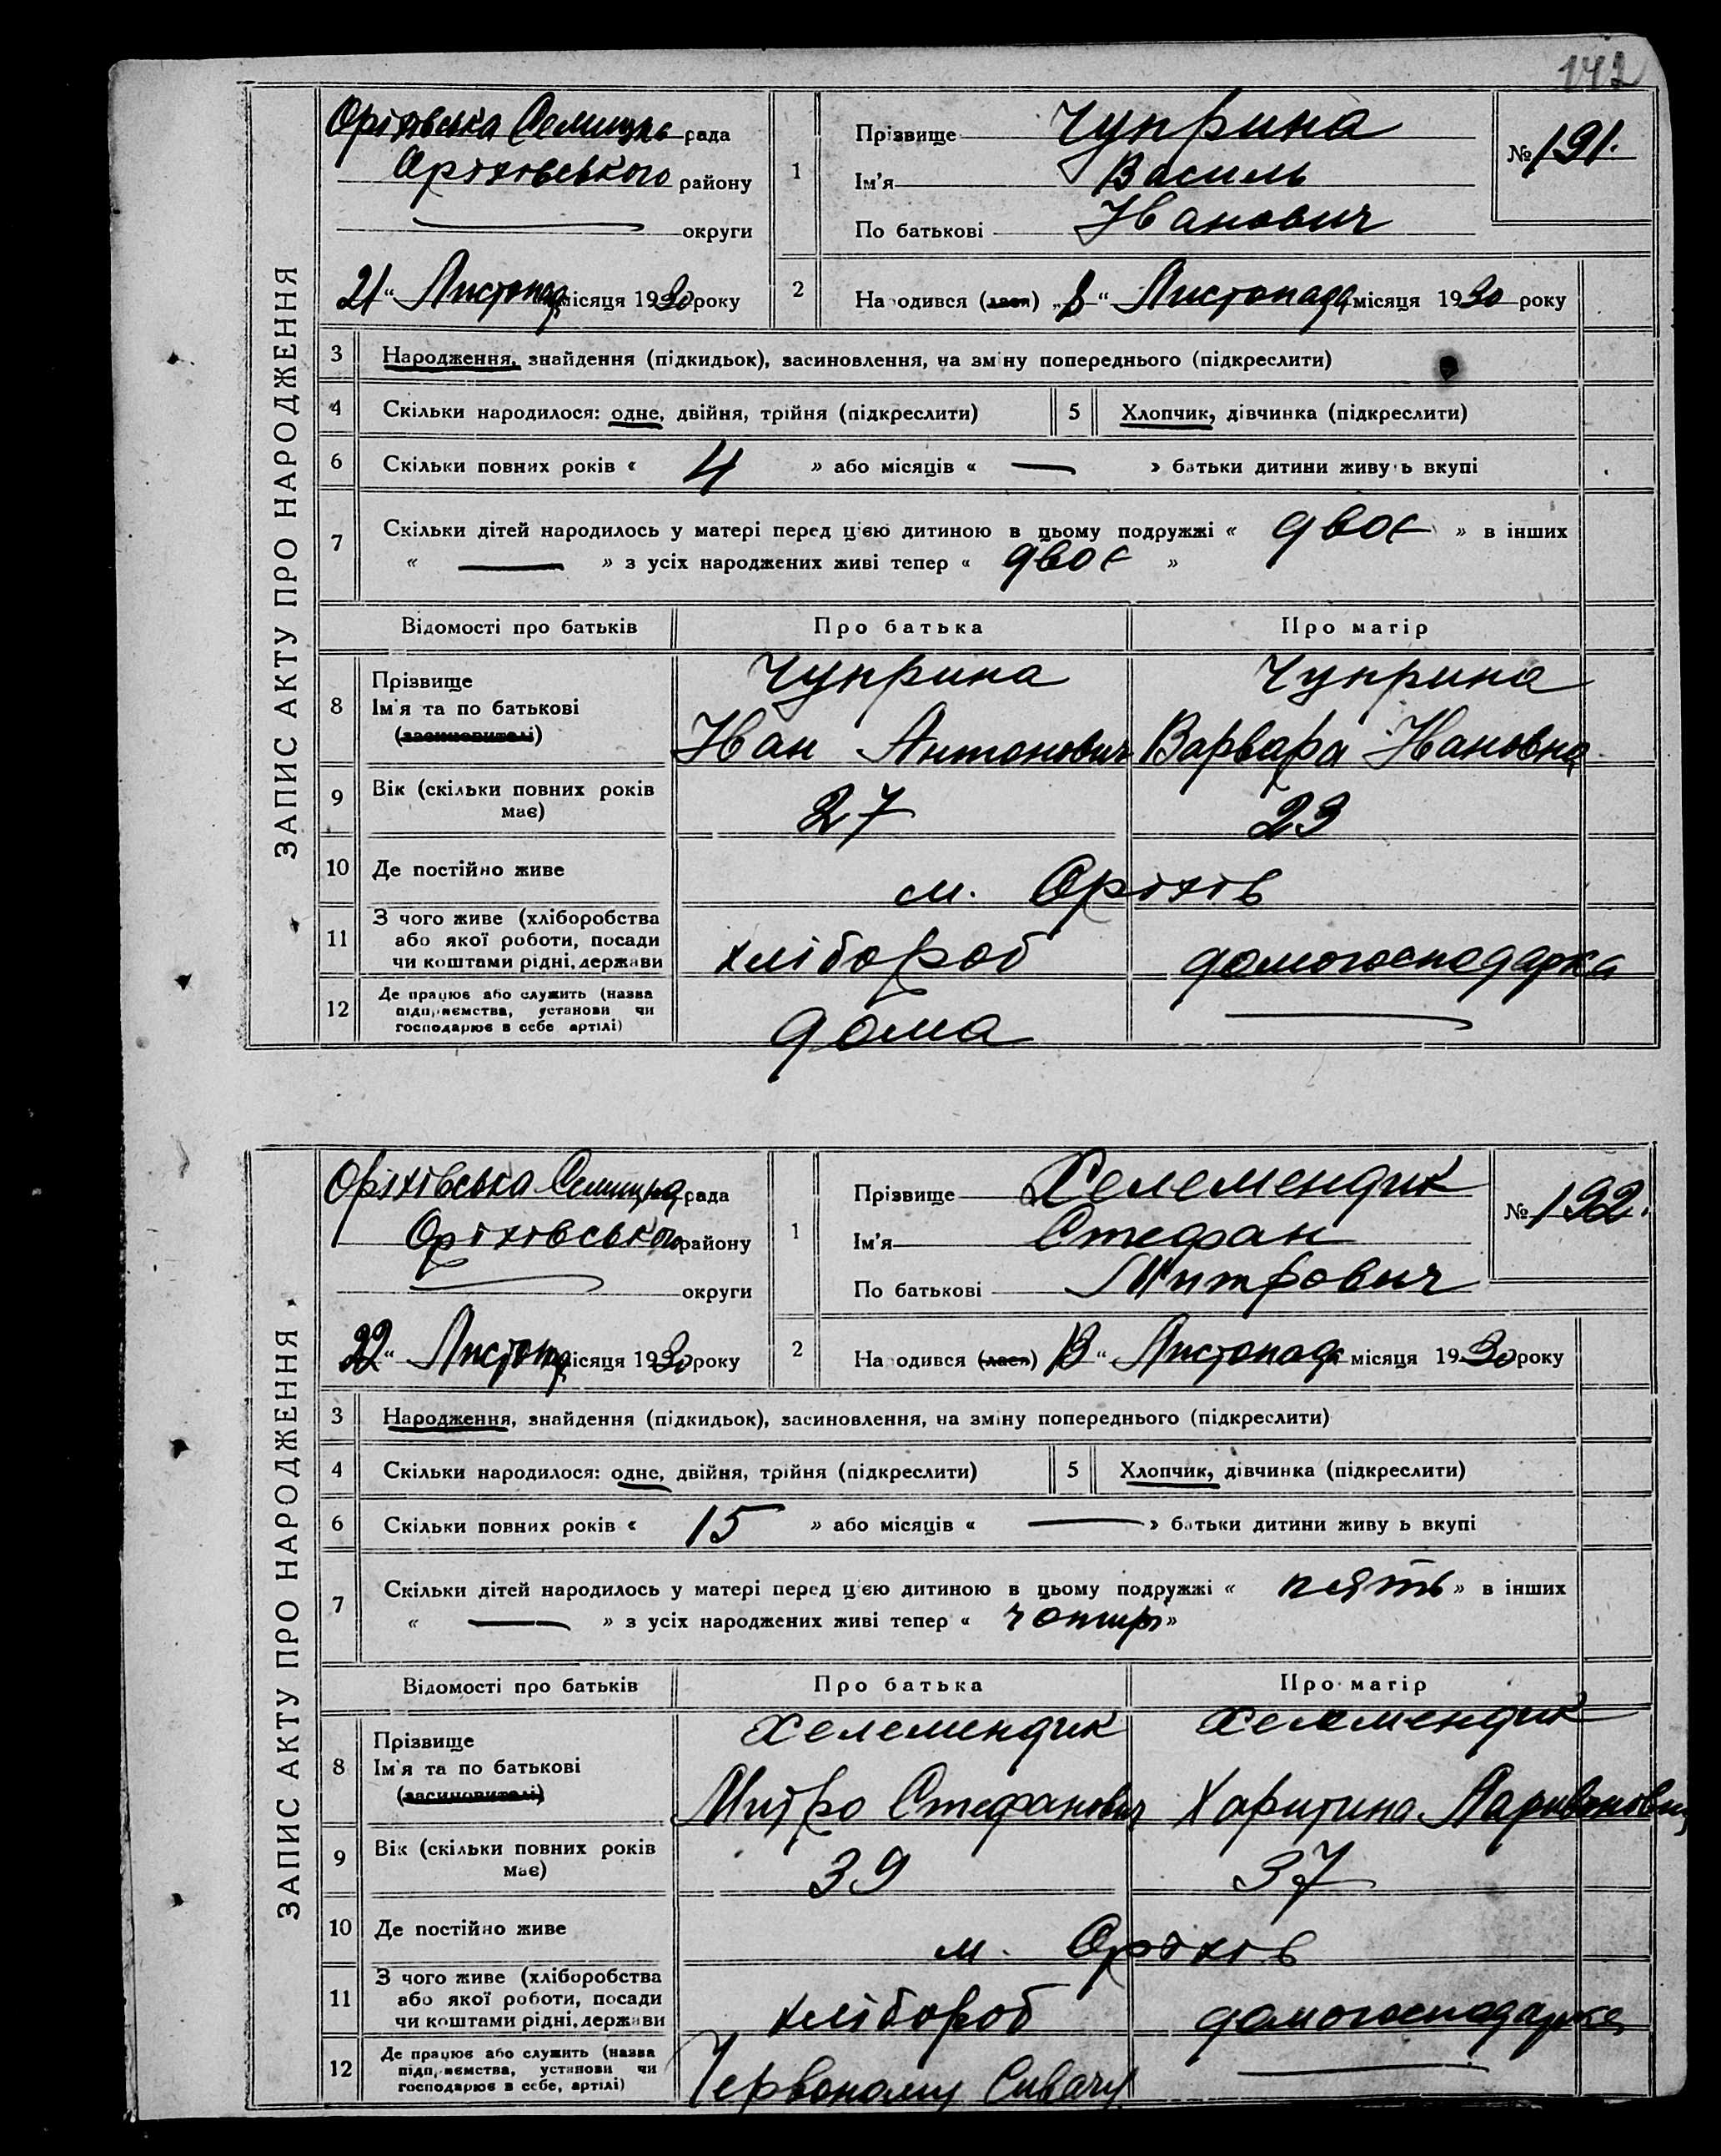 142
ЗАПИС АКТУ ПРО НАРОДЖЕННЯ
Оріхівська Селищна рада
Оріхівського району
— округи
21 " Листопада місяця 1930 року
1 Прізвище Чуприна
Ім'я Василь
По батькові Іванович
№ 191.
2 Народився (лась) " 8 " Листопада місяця 1930 року
3 Народження, знайдення (підкидьок), засиновлення, на зміну попереднього (підкреслити)
4 Скільки народилося: одне, двійня, трійня (підкреслити) 5 Хлопчик, дівчинка (підкреслити)
6 Скільки повних років « 4 » або місяців « — » батьки дитини живуть вкупі
7 Скільки дітей народилось у матері перед цією дитиною в цьому подружжі « двоє » в інших
« — » з усіх народжених живі тепер « двоє »
Відомості про батьків Про батька Про матір
8 Прізвище Ім'я та по батькові (засиновителі)
Чуприна Чуприна
Іван Антонович Варвара Івановна
9 Вік (скільки повних років має) 27 23
10 Де постійно живе м. Оріхів
11 З чого живе (хліборобства або якої роботи, посади чи коштами рідні, держави
хлібороб домогосподарка
12 Де працює або служить (назва підприємства, установи чи господарює в себе артілі)
дома —
ЗАПИС АКТУ ПРО НАРОДЖЕННЯ
Оріхівська Селищна рада
Оріхівського району
— округи
22 " Листопада місяця 1930 року
1 Прізвище Хелемендик
Ім'я Стефан
По батькові Митрович
№ 192.
2 Народився (лась) 13 " Листопада місяця 1930 року
3 Народження, знайдення (підкидьок), засиновлення, на зміну попереднього (підкреслити)
4 Скільки народилося: одне, двійня, трійня (підкреслити) 5 Хлопчик, дівчинка (підкреслити)
6 Скільки повних років « 15 » або місяців « — » батьки дитини живуть вкупі
7 Скільки дітей народилось у матері перед цією дитиною в цьому подружжі « пять » в інших
« — » з усіх народжених живі тепер « чотирі »
Відомості про батьків Про батька Про матір
8 Прізвище Ім'я та по батькові (засиновителі)
Хелемендик Хелемендик
Митро Стефанович Харитина
9 Вік (скільки повних років має) 39 37
10 Де постійно живе м. Оріхів
11 З чого живе (хліборобства або якої роботи, посади чи коштами рідні, держави
хлібороб домогосподарка
12 Де працює або служить (назва підприємства, установи чи господарює в себе, артілі)
Червоному Сивачу —